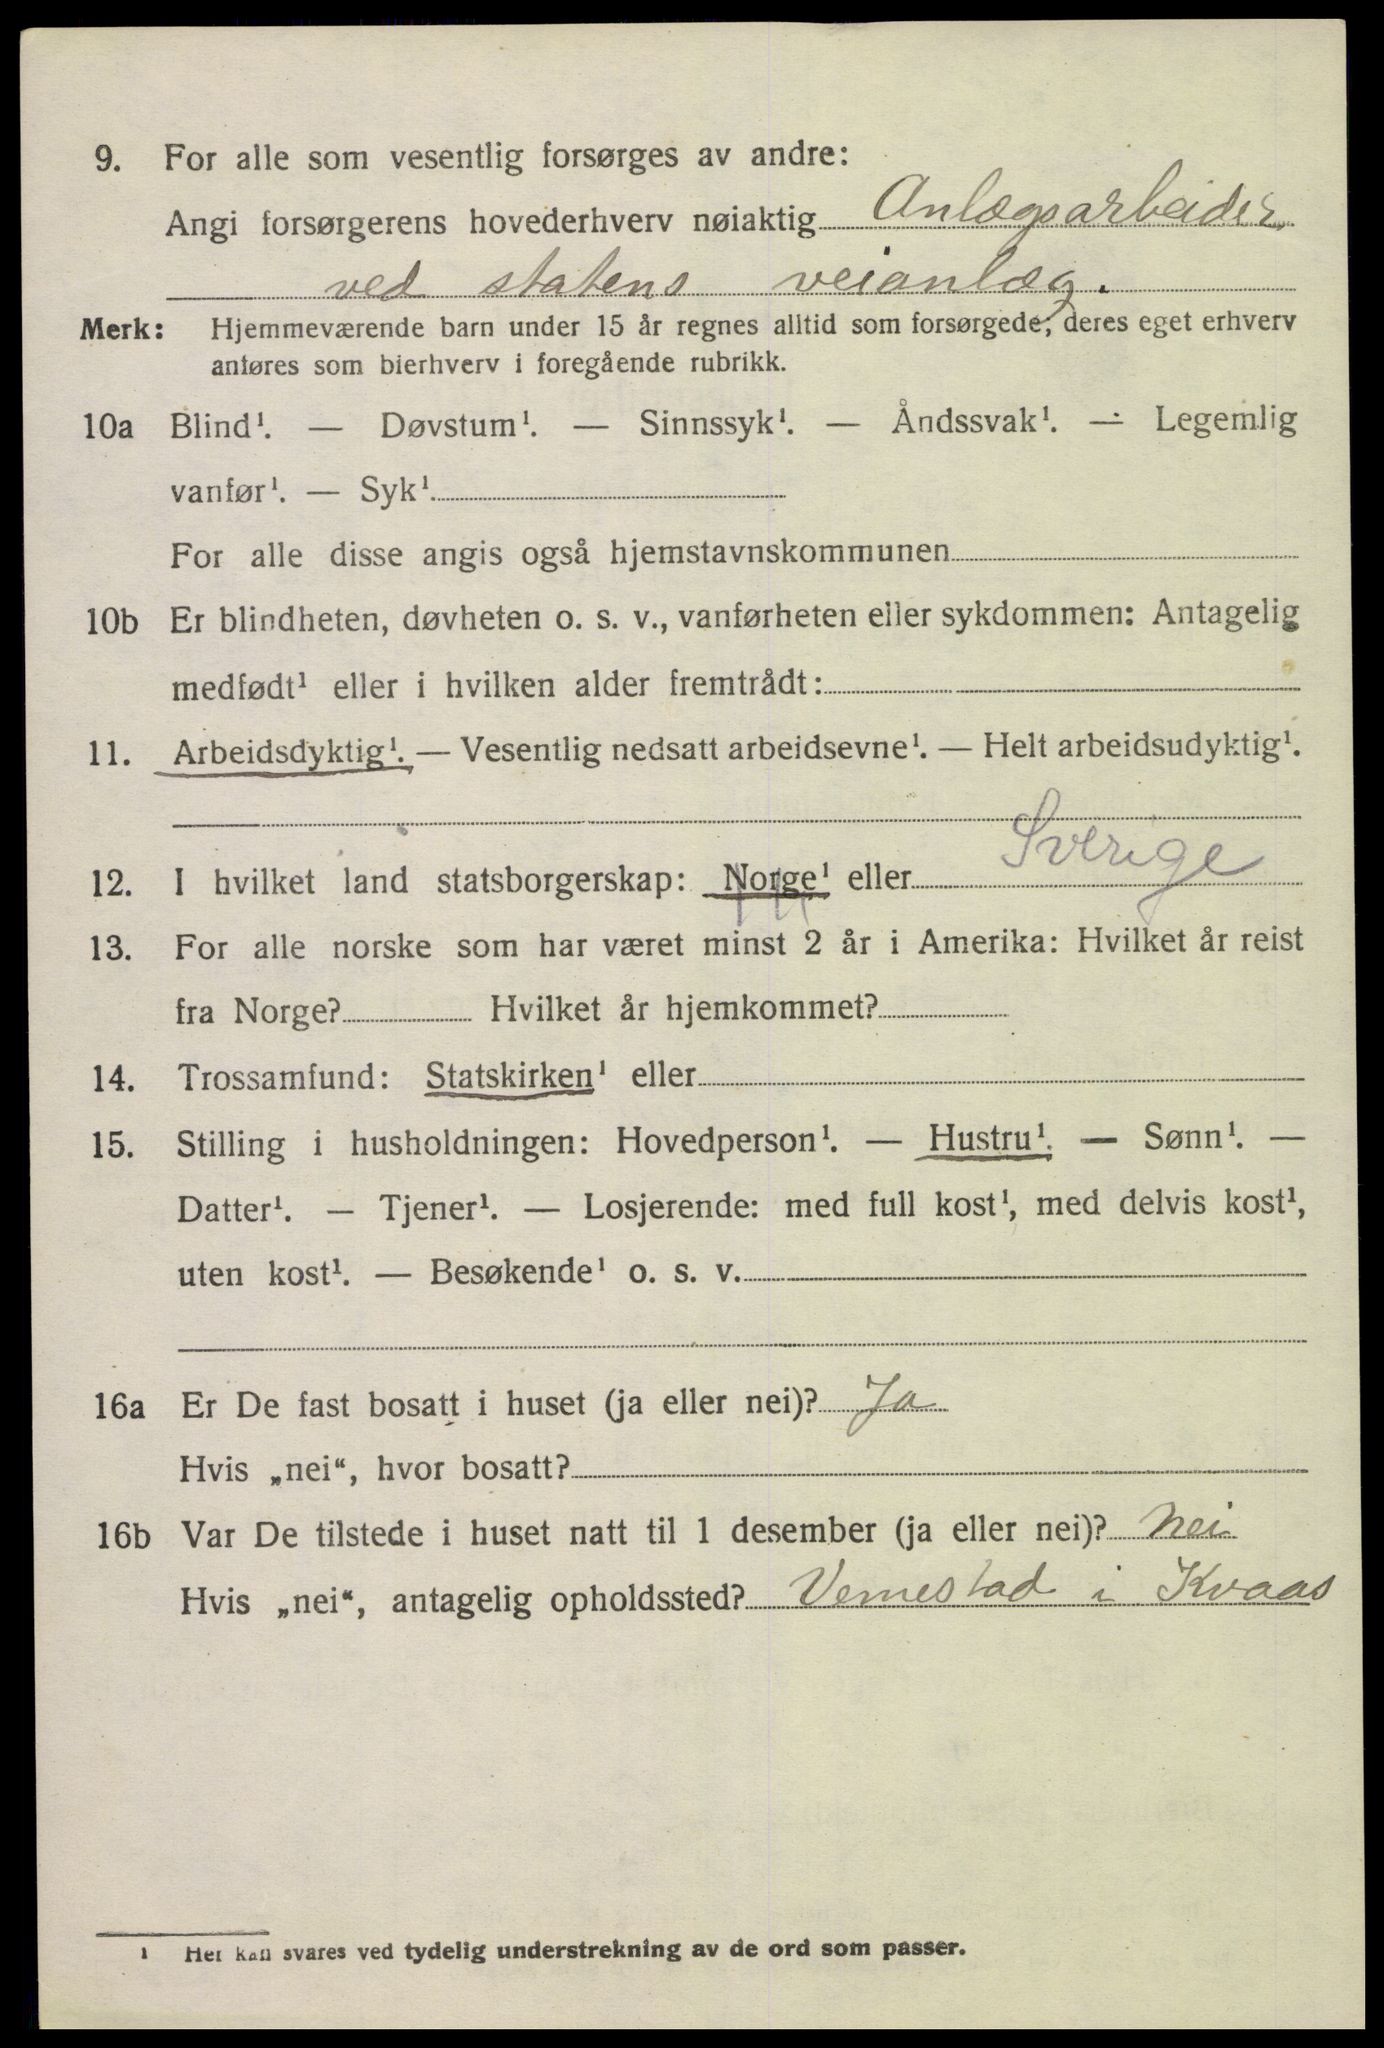 9. For alle som vesentlig forsørges av andre:
Angi forsørgerens hovederhverv nøiaktig Anlægsarbeider
ved statens veianlæg.
Merk: Hjemmeværende barn under 15 år regnes alltid som forsørgede, deres eget erhverv
anføres som bierhverv i foregående rubrikk.
10a Blind¹. — Døvstum¹. — Sinnssyk¹. — Åndssvak¹. — Legemlig
vanfør¹. — Syk¹.
For alle disse angis også hjemstavnskommunen
10b Er blindheten, døvheten o. s. v., vanførheten eller sykdommen: Antagelig
medfødt¹ eller i hvilken alder fremtrådt:
11. Arbeidsdyktig¹. — Vesentlig nedsatt arbeidsevne¹. — Helt arbeidsudyktig¹.
12. I hvilket land statsborgerskap: Norge¹ eller Sverige
13. For alle norske som har været minst 2 år i Amerika: Hvilket år reist
fra Norge? Hvilket år hjemkommet?
14. Trossamfund: Statskirken¹ eller
15. Stilling i husholdningen: Hovedperson¹. — Hustru¹. — Sønn¹. —
Datter¹. — Tjener¹. — Losjerende: med full kost¹, med delvis kost¹,
uten kost¹. — Besøkende¹ o. s. v.
16a Er De fast bosatt i huset (ja eller nei)? Ja
Hvis „nei“, hvor bosatt?
16b Var De tilstede i huset natt til 1 desember (ja eller nei)? Nei
Hvis „nei“, antagelig opholdssted? Vemestad i Kvaas
¹ Her kan svares ved tydelig understrekning av de ord som passer.